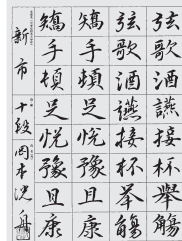 弦歌酒讌接杯舉觴
弦歌酒讌接杯举觴
矯手頓足悦豫且康
矯手頓足悦豫且康
新市 十段 岡本